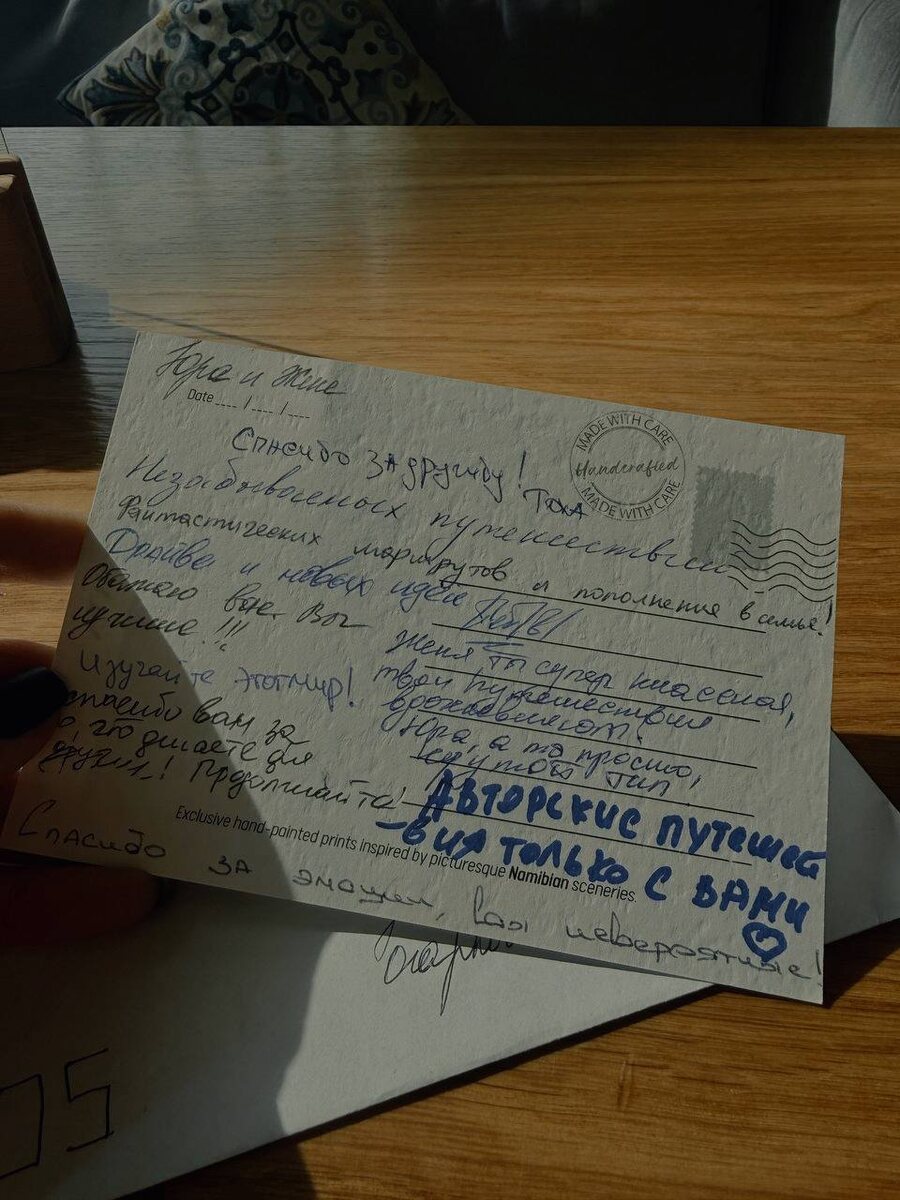 Юра и Жене
Date __/__/__
MADE WITH CARE
Handcrafted
MADE WITH CARE
Спасибо за дружбу!
Незабываемых путешествий
Фантастических маршрутов и пополнение в семье!
Драйва и новых идей
Обожаю вас. Вы
лучшие!!!
Изучайте этот мир!
Спасибо вам за
то, что делаете для
других! Продолжайте!
Женя ты супер классная,
твои путешествия
вдохновляют!
Юра, а ты просто,
крутой тип!
Авторские путешест
-вия только с вами
Exclusive hand-painted prints inspired by picturesque Namibian sceneries
Спасибо за эмоции, вы невероятные!